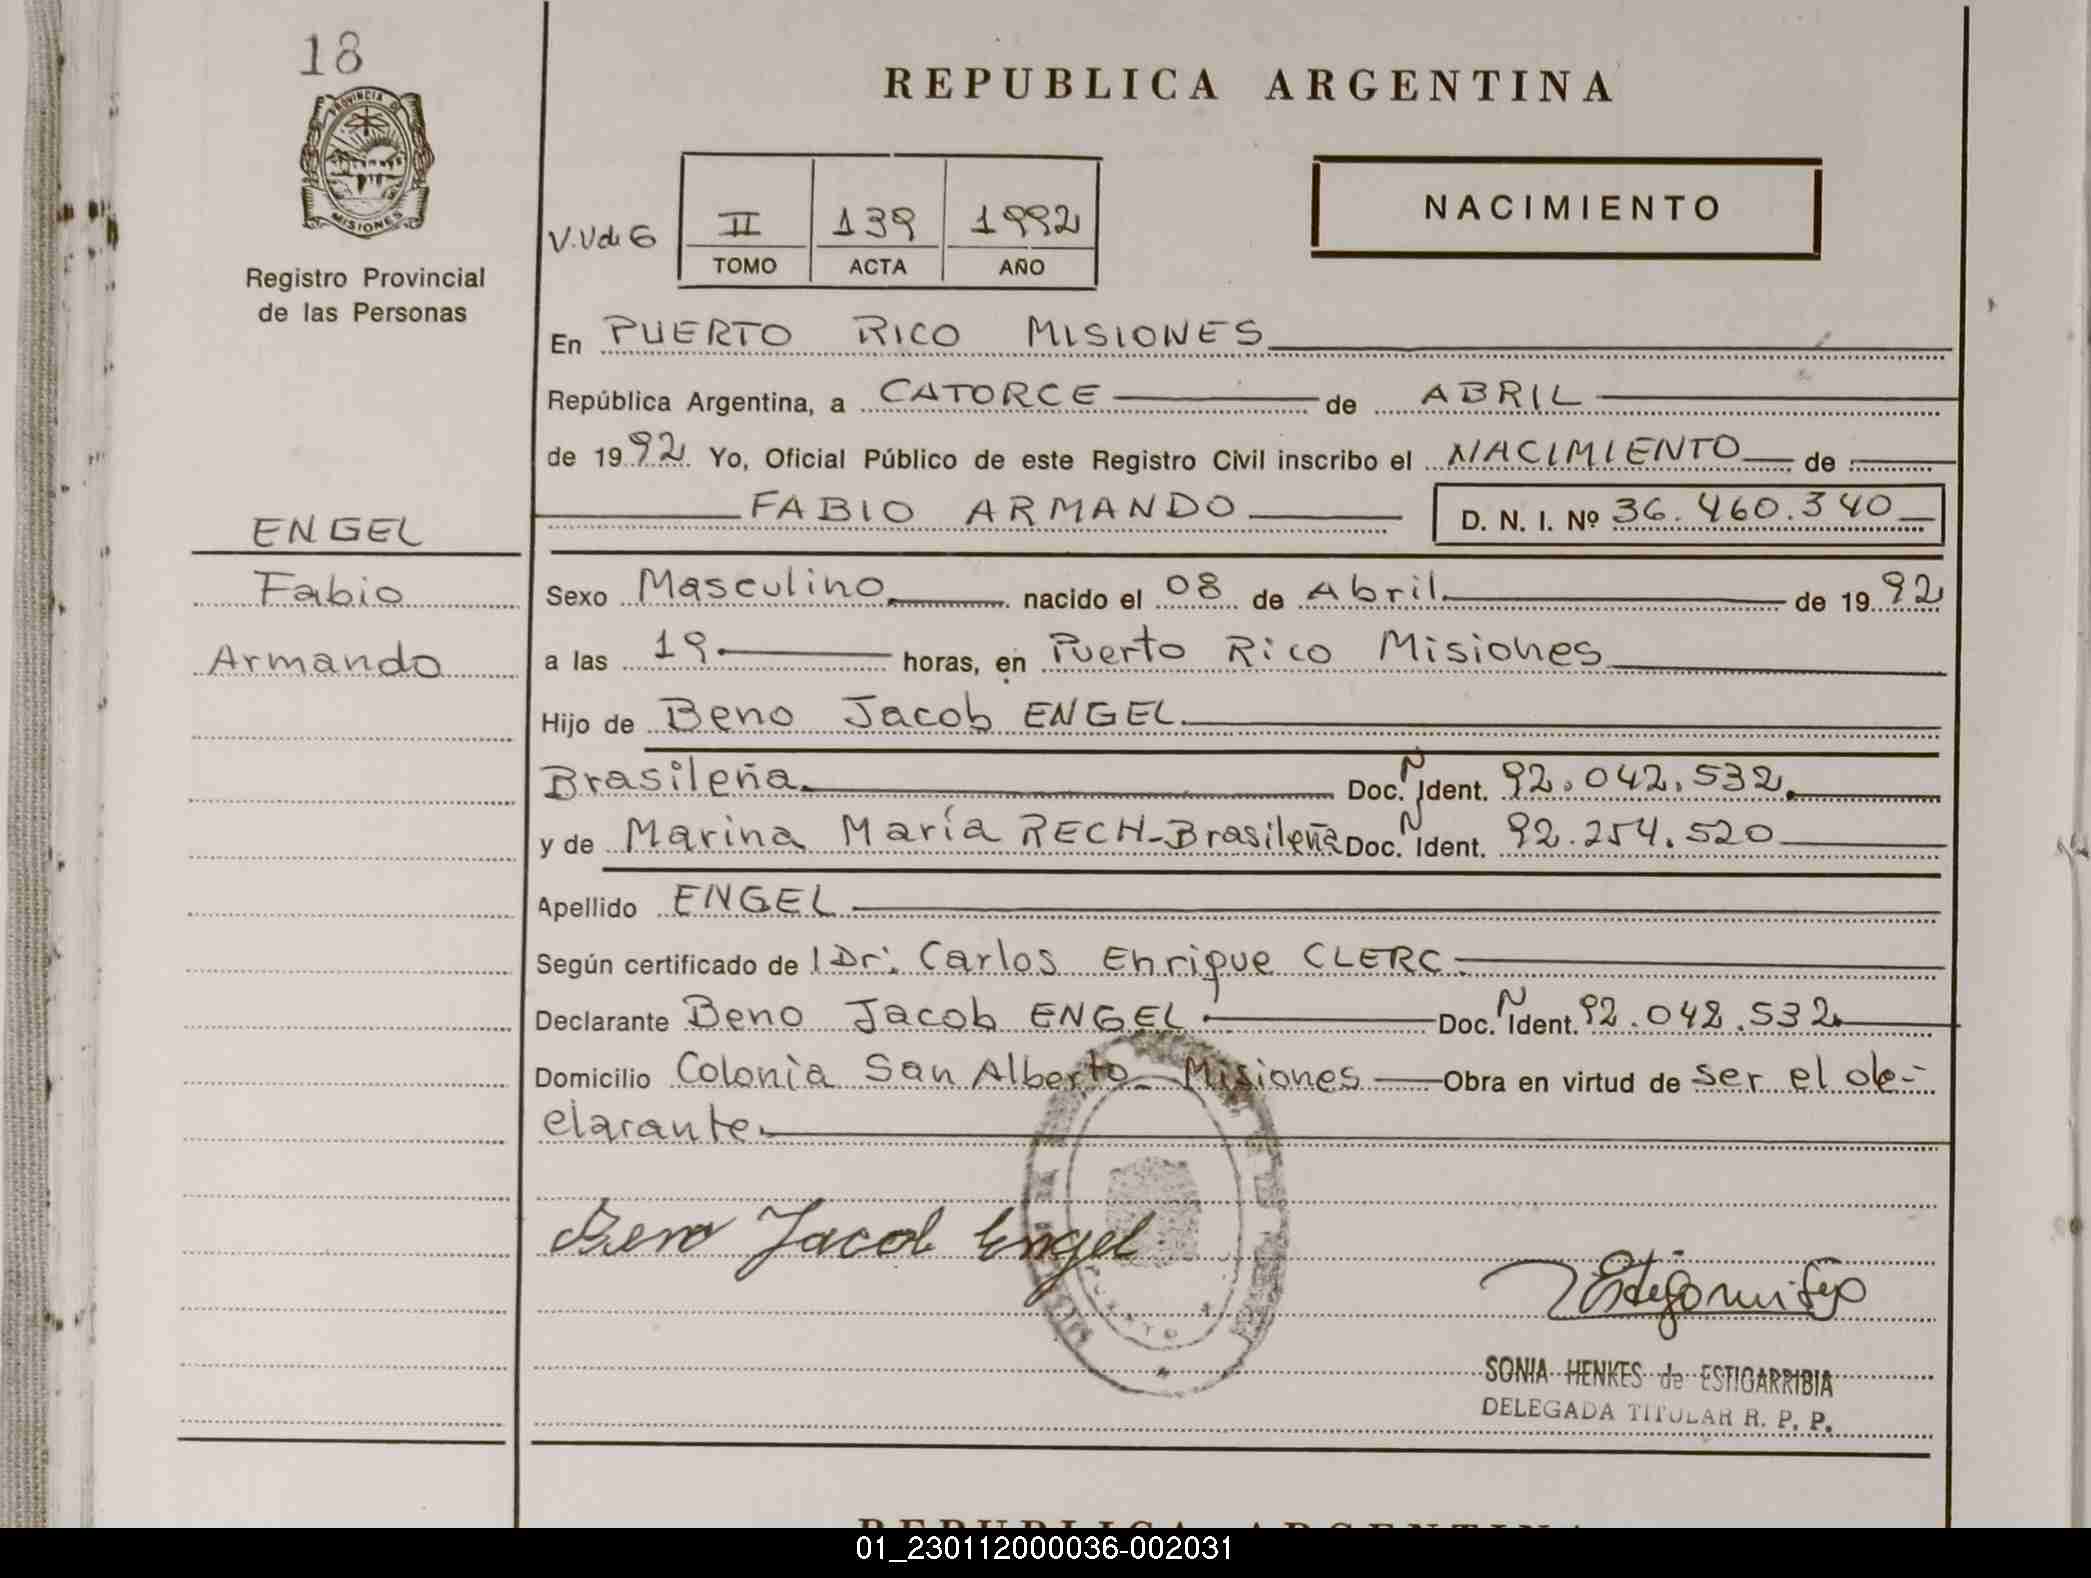 18
PROVINCIA DE
MISIONES
Registro Provincial
de las Personas
REPUBLICA ARGENTINA
V.Vda G
II 139 1992
TOMO ACTA AÑO
NACIMIENTO
En PUERTO RICO MISIONES
República Argentina, a CATORCE de ABRIL
de 1992 Yo, Oficial Público de este Registro Civil inscribo el NACIMIENTO de
FABIO ARMANDO D. N. I. Nº 36.460.340
ENGEL
Fabio
Armando
Sexo Masculino nacido el 08 de Abril de 1992
a las 19 horas, en Puerto Rico Misiones
Hijo de Beno Jacob ENGEL
Brasileña Doc. Ñ Ident. 92.042.532.
y de Marina María RECH-Brasileña Doc. Ñ Ident. 92.254.520
Apellido ENGEL
Según certificado de l Dr. Carlos Enrique CLERC
Declarante Beno Jacob ENGEL Doc. Ñ Ident. 92.042.532
Domicilio Colonia San Alberto Misiones Obra en virtud de ser el de-
clarante.
Beno Jacob Engel
SONIA HENKES de ESTIGARRIBIA
DELEGADA TITULAR R. P. P.
REPUBLICA ARGENTINA
01_230112000036-002031